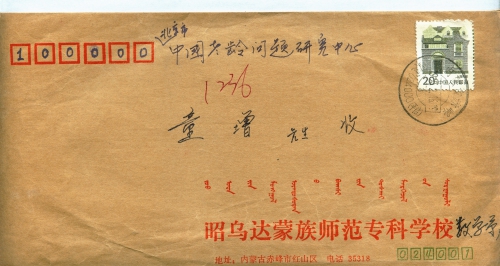 北京市
100000
中国老龄问题研究中心
1236
童增 收
20
中国人民邮政
昭乌达蒙族师范专科学校 数学系
地址:内蒙古赤峰市红山区 电话 35318
024001